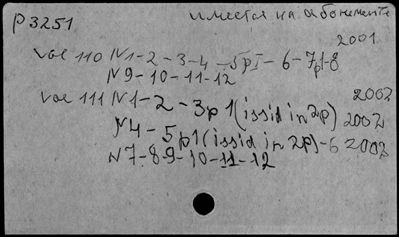 P3251 имеется на абонементе
2001
Vol 110 N1-2-3-4-5pI-6-7p1-8
N9-10-11-12
Vol 111 N1-2-3p1(issid in 2p) 2002
N4-5p1(issid in 2p)-6 2002
N7-8-9-10-11-12 2002